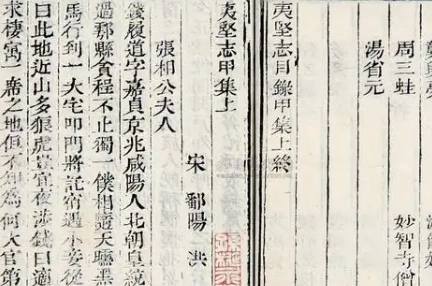 周三蛙
妙智寺僧
湯省元
夷堅志目錄甲集上終
夷堅志甲集上
宋 鄱陽 洪
張相公夫人
錢履道字嘉貞京兆咸陽人北朝皇統
過那縣貪程不止獨一僕相隨天曛黑
馬行到一大宅叩門將託宿遇小妾從
曰此地近山多狼虎豈宜夜涉錢曰適
求棲寓一席之地但不知為何大官第